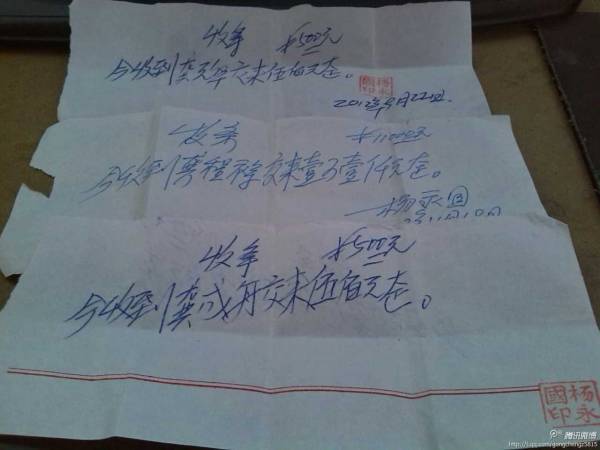 收条 ¥500元
今收到龚天年交来伍佰元在。
杨永国印
2012年9月22日.
收条 ¥11000元
今收到 程 交来壹万壹仟元在。
杨永国
11月10日
收条 ¥500元
今收到龚成舟交来伍佰元在。
杨永國印
腾讯微博
http://t.qq.com/gongchengz5815